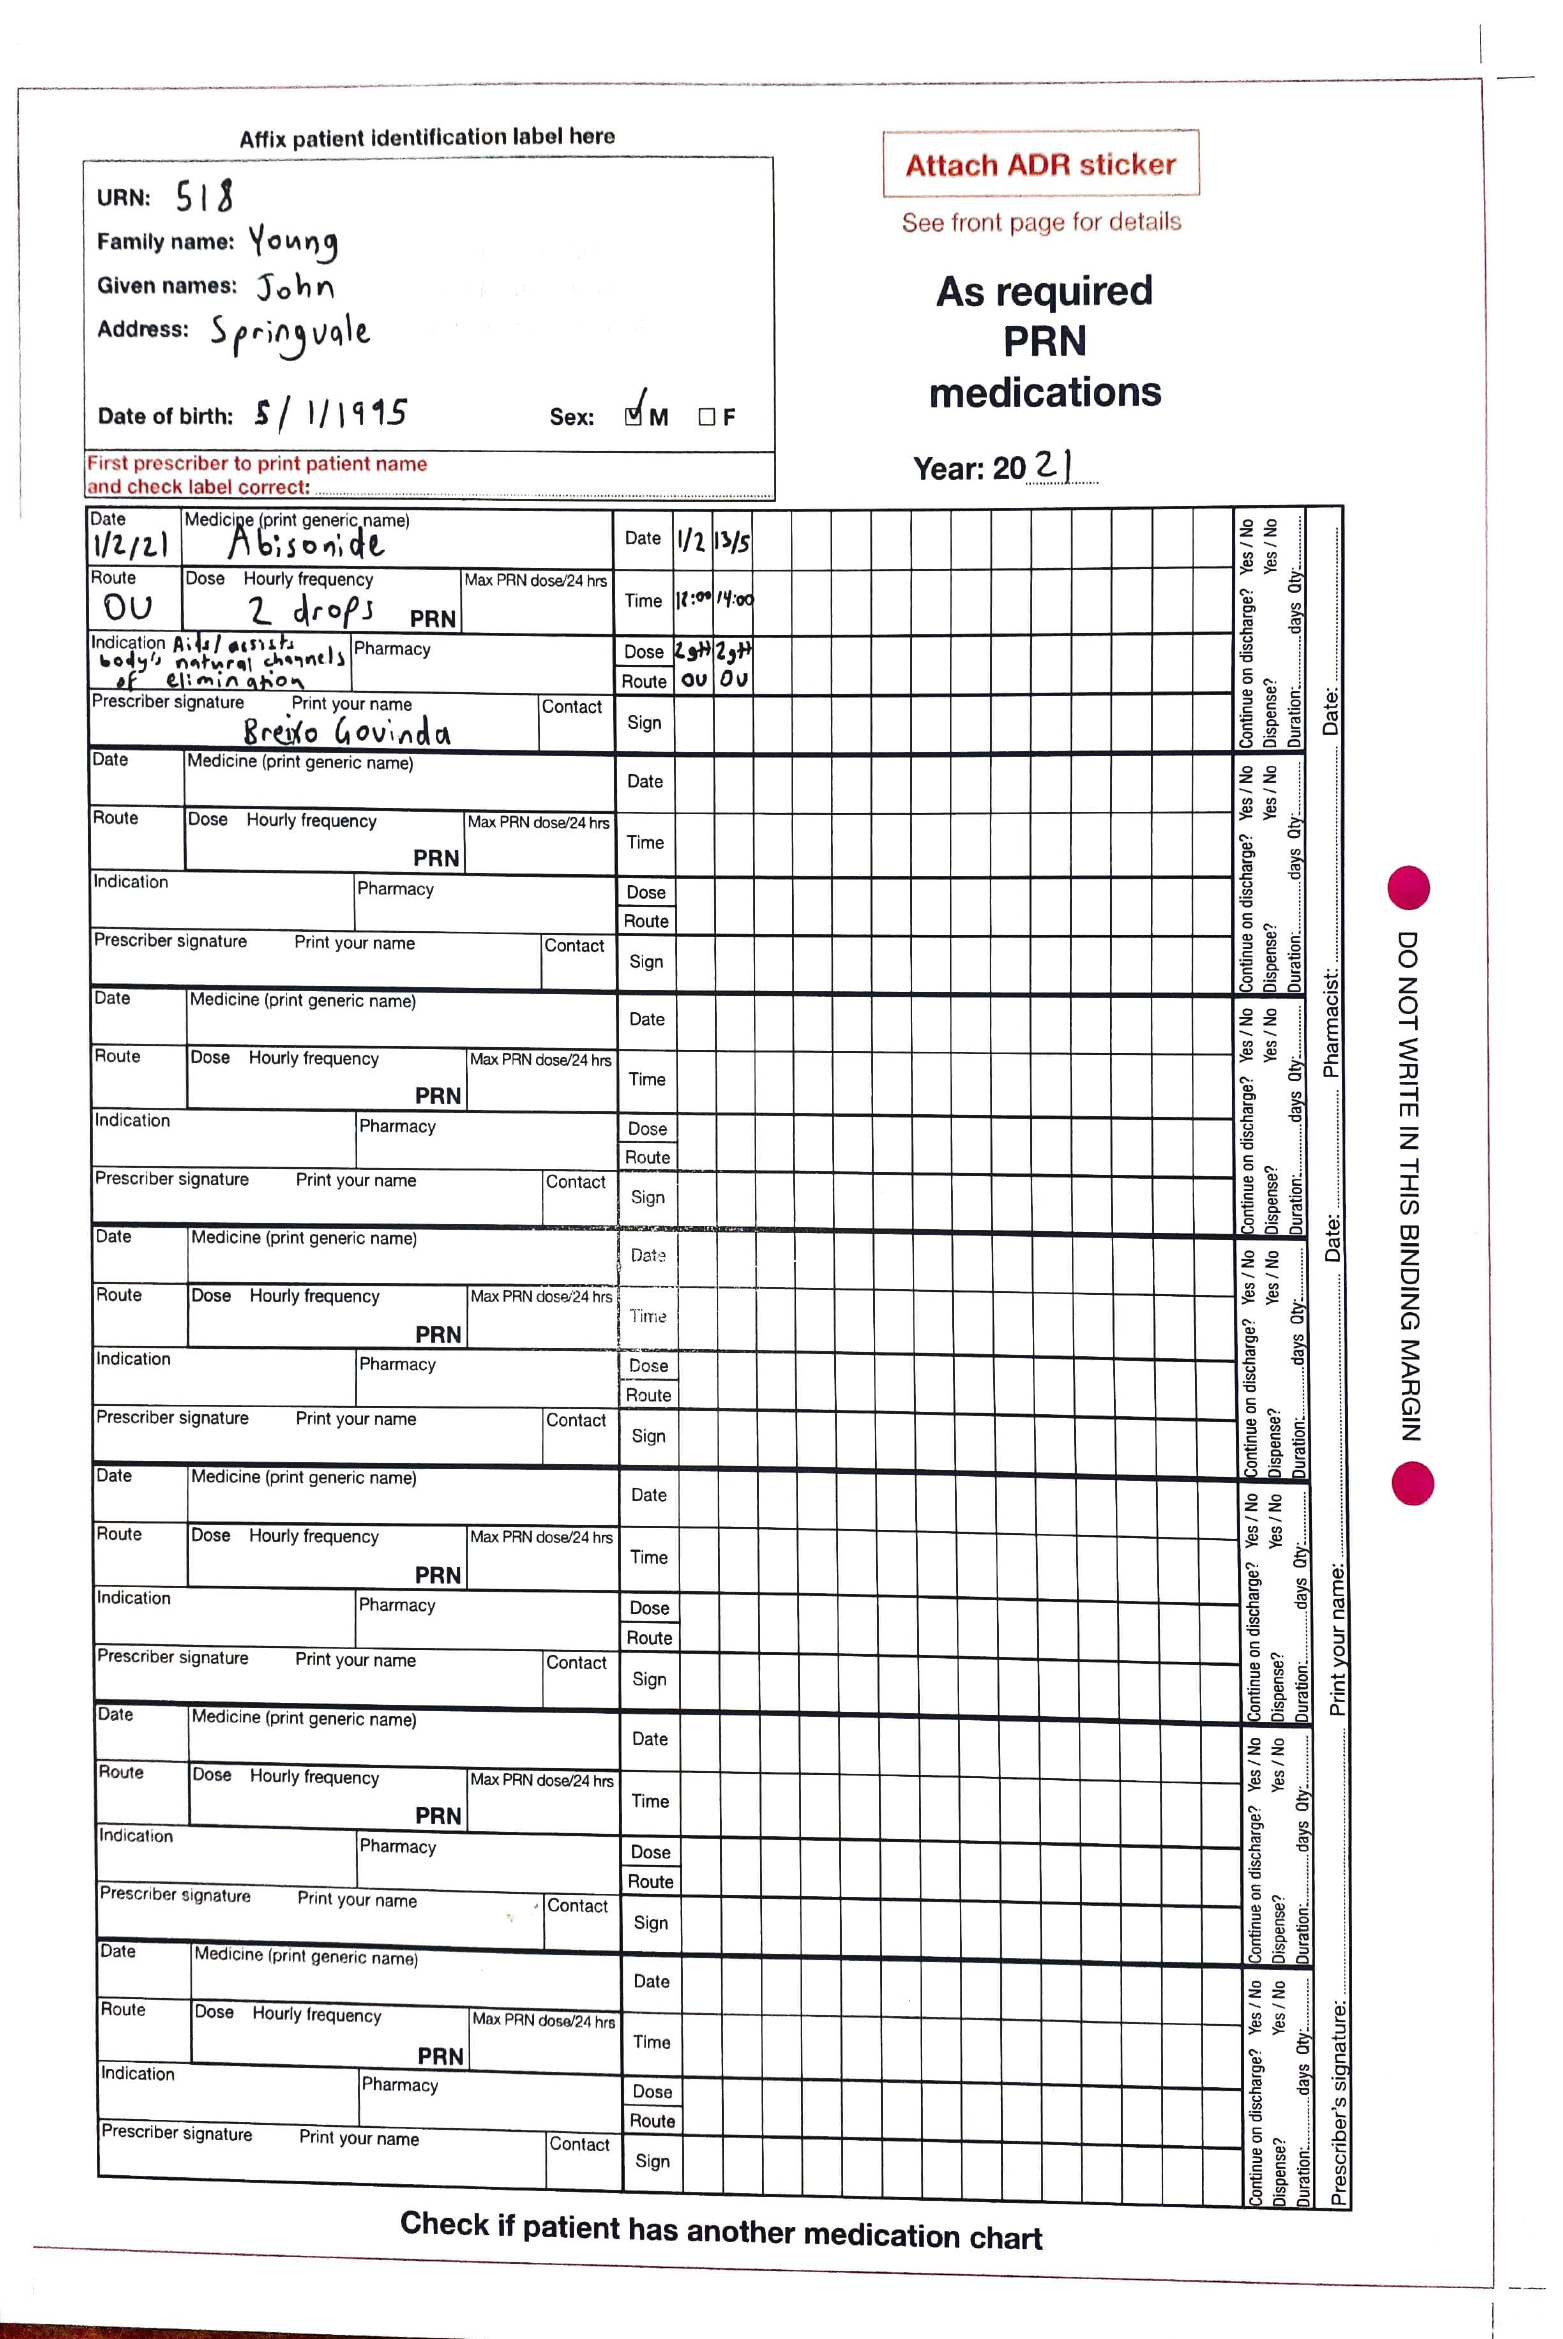 Affix patient identification label here
URN: 518
Family name: Young
Given names: John
Address: Springvale
Date of birth: 5/1/1995 Sex: M F
First prescriber to print patient name
and check label correct:
Attach ADR sticker
See front page for details
As required
PRN
medications
Year: 20 21
Date Medicine (print generic name) Date 1/2 13/5
1/2/21 Abisonide
Route Dose Hourly frequency Max PRN dose/24 hrs Time 12:00 14:00
OU 2 drops PRN
Indication Aids/assists Pharmacy Dose 2gtt 2gtt
body's natural channels
of elimination Route OU OU
Prescriber signature Print your name Contact Sign
Breixo Govinda
Continue on discharge? Yes / No
Dispense? Yes / No
Duration: days Qty:
Date Medicine (print generic name) Date
Route Dose Hourly frequency Max PRN dose/24 hrs Time
PRN
Indication Pharmacy Dose
Route
Prescriber signature Print your name Contact Sign
Continue on discharge? Yes / No
Dispense? Yes / No
Duration: days Qty:
Date Medicine (print generic name) Date
Route Dose Hourly frequency Max PRN dose/24 hrs Time
PRN
Indication Pharmacy Dose
Route
Prescriber signature Print your name Contact Sign
Continue on discharge? Yes / No
Dispense? Yes / No
Duration: days Qty:
Date Medicine (print generic name) Date
Route Dose Hourly frequency Max PRN dose/24 hrs Time
PRN
Indication Pharmacy Dose
Route
Prescriber signature Print your name Contact Sign
Continue on discharge? Yes / No
Dispense? Yes / No
Duration: days Qty:
Date Medicine (print generic name) Date
Route Dose Hourly frequency Max PRN dose/24 hrs Time
PRN
Indication Pharmacy Dose
Route
Prescriber signature Print your name Contact Sign
Continue on discharge? Yes / No
Dispense? Yes / No
Duration: days Qty:
Date Medicine (print generic name) Date
Route Dose Hourly frequency Max PRN dose/24 hrs Time
PRN
Indication Pharmacy Dose
Route
Prescriber signature Print your name Contact Sign
Continue on discharge? Yes / No
Dispense? Yes / No
Duration: days Qty:
Date Medicine (print generic name) Date
Route Dose Hourly frequency Max PRN dose/24 hrs Time
PRN
Indication Pharmacy Dose
Route
Prescriber signature Print your name Contact Sign
Continue on discharge? Yes / No
Dispense? Yes / No
Duration: days Qty:
Prescriber's signature: Print your name: Date: Pharmacist: Date:
DO NOT WRITE IN THIS BINDING MARGIN
Check if patient has another medication chart